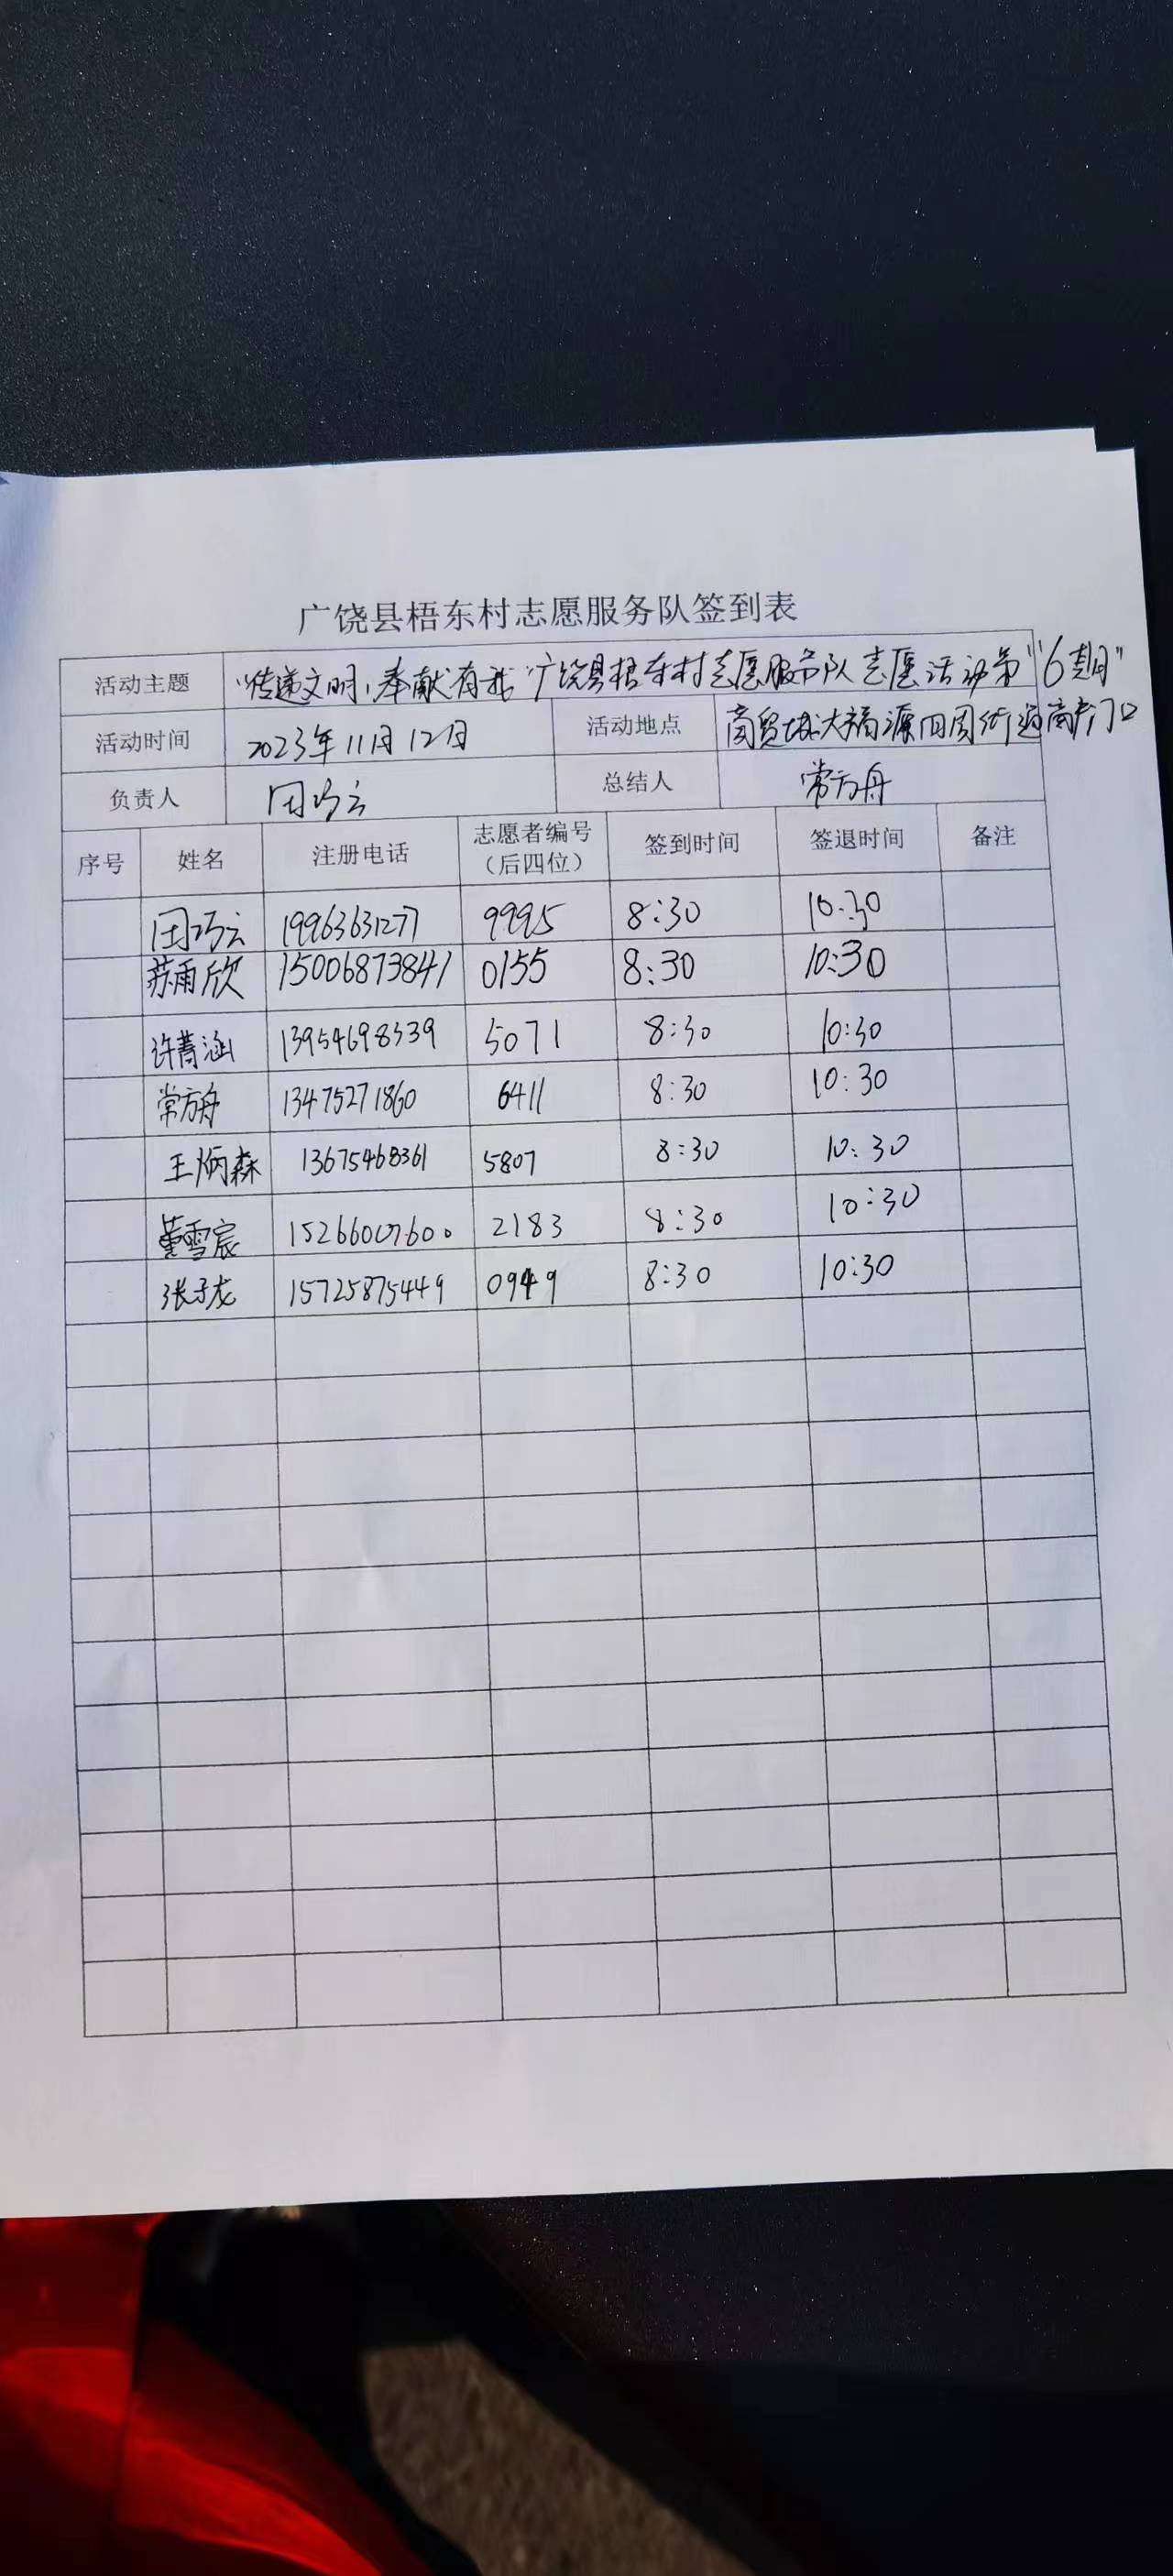 广饶县梧东村志愿服务队签到表
活动主题 "传递文明,奉献有我"广饶县梧东村志愿服务队志愿活动第"6期"
活动时间 2023年11月12日 活动地点 商贸城大福源四周街道商户门口
负责人 田巧云 总结人 常方舟
序号 姓名 注册电话 志愿者编号(后四位) 签到时间 签退时间 备注
田巧云 19963631277 9995 8:30 10:30
苏雨欣 15006873841 0155 8:30 10:30
许菁涵 13954698539 5071 8:30 10:30
常方舟 13475271860 6411 8:30 10:30
王炳森 13675468361 5807 8:30 10:30
董雪宸 15266007600 2183 8:30 10:30
张子龙 15725875449 0949 8:30 10:30